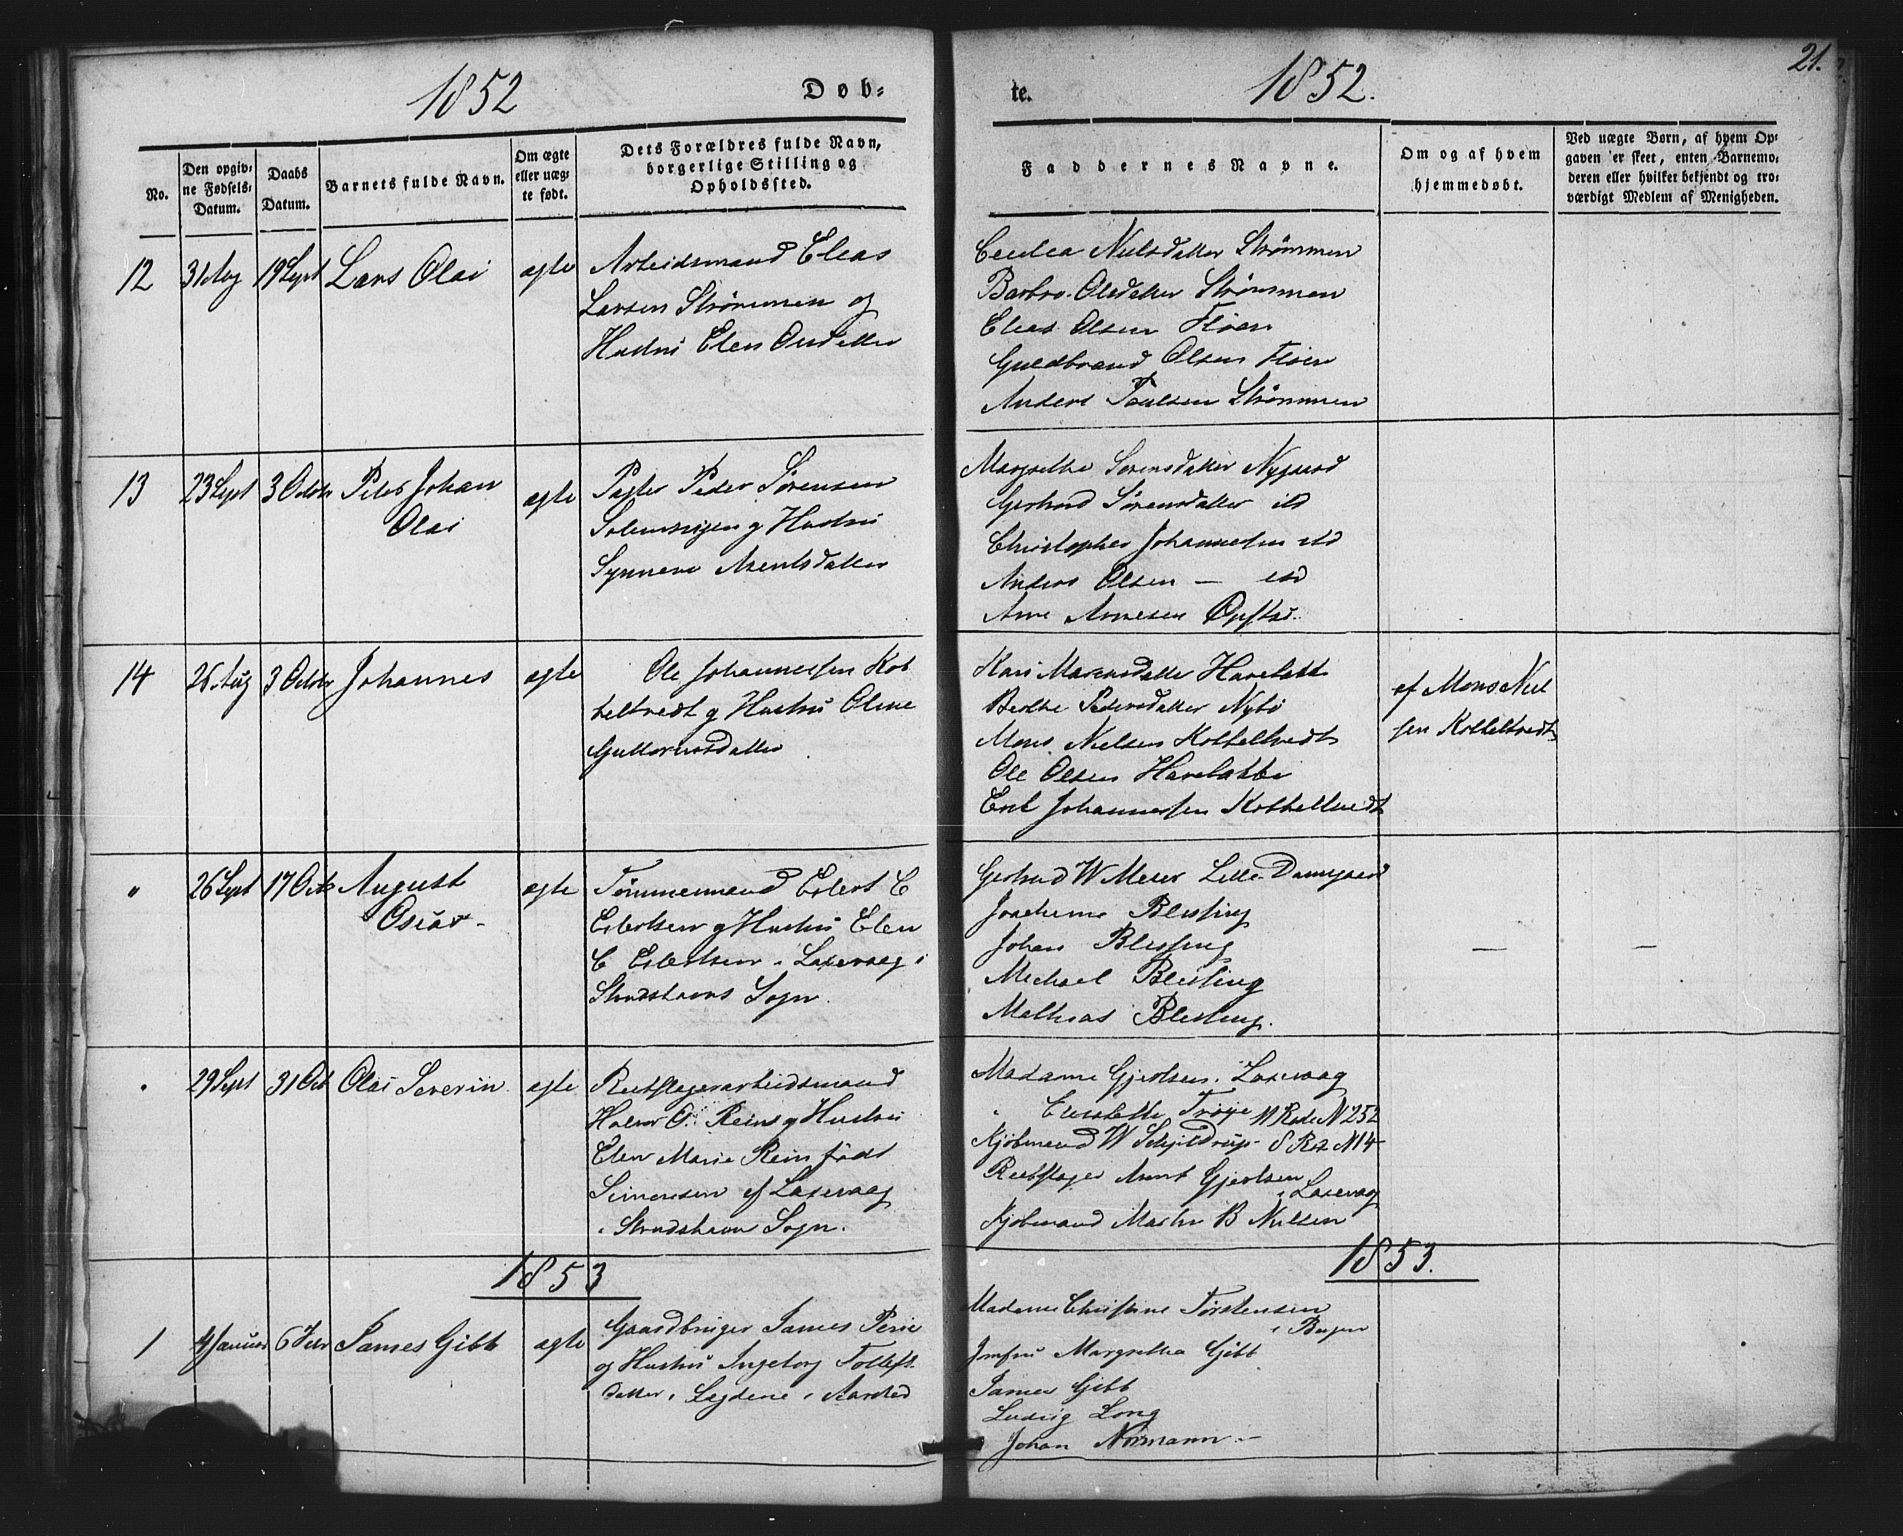 21.
1852
Døb=
te.
1852.
No.
Den opgiv=
ne Fødsels=
Datum.
Daabs
Datum.
Barnets fulde Navn.
Om ægte
eller uæg=
te født.
Dets Forældres fulde Navn,
borgerlige Stilling og
Opholdssted.
Faddernes Navne.
Om og af hvem
hjemmedøbt.
Ved uægte Børn, af hvem Op=
gaven er skeet, enten Barnemo=
deren eller hvilket bekjendt og tro=
værdigt Medlem af Menigheden.
12
31 Aug
19 Sept
Lars Olai
ægte
Arbeidsmand Elias
Larsen Strømmen og
Hustru Elen
Nielsdatter Strømmen
Barbro Olsdatter Strømmen
Elias Olsen Fløen
Guldbrand Olsen Fløen
Anders Poulsen Strømmen
13
23 Sept
3 Octbr
Peter Johan
Olai
ægte
Pagter Peder Sørensen
og Hustru
Synneve Arentsdatter
Margrethe Sørensdatter Nygaard
Gertrud Sørensdatter itd
Christopher Johannesen itd
Anders Olsen — itd
Arne Arnesen
14
26 Aug
3 Octbr
Johannes
ægte
Ole Johannessen Kob
beltvedt og Hustru Oline
Guttormsdatter
Kari Marcusdatter
Berthe Pedersdatter Nybø
Mons Nielsen Kobbeltvedt
Ole Olsen
Johannessen Kobbeltvedt
af Mons Niel
sen Kobbeltvedt
"
26 Sept
17 Octb
August
Oscar -
ægte
Tømmermand Eilert C
Eilertsen og Hustru Elen
C Eilertsen i Laxevaag i
Strudshavns Sogn.
Gertrud W Meier Lille Damgaard
Joachime Blessing
Johan Blessing
Michael Blessing
Mathias Blessing.
—
—
"
29 Sept
31 Oct
Olai Severin
ægte
Reebslagerarbeidsmand
Halvor O. Rein og Hustru
Elen Marie Rein født
Simonsen af Laxevaag
i Strudshavn Sogn.
Madame Gjertsen i Laxevaag
" Elisabeth Trøye 11 Rode N 252
Kjøbmand W Schjeldrup 8 Rod N 14
Reebslager Arent Gjertsen
i Laxevaag
Kjøbmand Martin B Nielsen
1853
1853.
1
4 Januar
6 Febr
James Gibb
ægte
Gaardbruger James
og Hustru Ingeborg Tollefs
datter i Løgdene i Aarstad
Madame Christine Torstensen
i Bergen
Jomfru Margretha Gibb
James Gibb
Ludvig Long
Johan Normann -